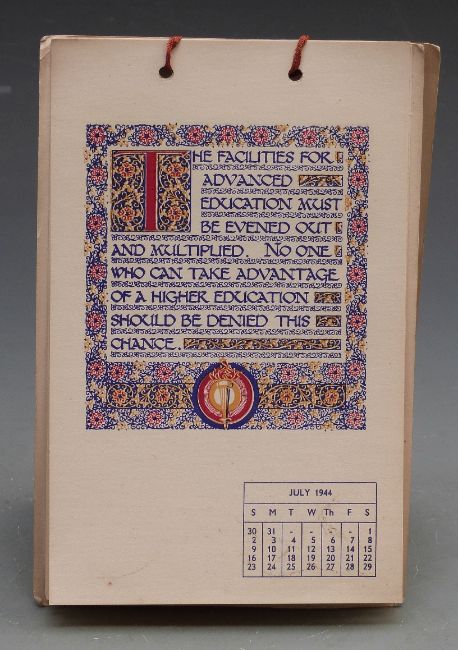 THE FACILITIES FOR
ADVANCED
EDUCATION MUST
BE EVENED OUT
AND MULTIPLIED. NO ONE
WHO CAN TAKE ADVANTAGE
OF A HIGHER EDUCATION
SHOULD BE DENIED THIS
CHANCE.
JULY 1944
S M T W Th F S
30 31 - - - - 1
2 3 4 5 6 7 8
9 10 11 12 13 14 15
16 17 18 19 20 21 22
23 24 25 26 27 28 29